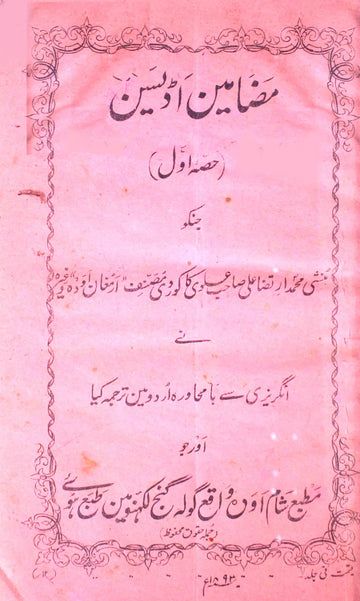 مضامین اڈیسن
(حصہ اول)
جنکو
منشی محمد ارتضا علی صاحب علوی کاکوروی مصنف "ارمغان اودہ" وغیرہ
نے
انگریزی سے بامحاورہ اردو مین ترجمہ کیا
اور جو
مطبع شام اودہ واقع گولہ گنج لکھنؤ مین طبع ہوئے
جملہ حقوق محفوظ
قیمت فی جلد
۱۸۹۳ء
(۱۲)